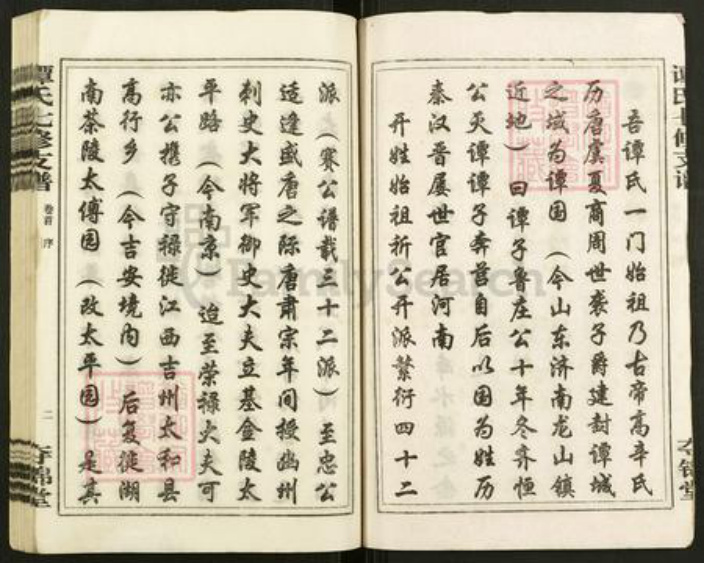 吾谭氏一门始祖乃古帝高辛氏
历唐虞夏商周世袭子爵建封谭城
之域为谭国（今山东济南龙山镇
近地）曰谭子鲁庄公十年冬齐恒
公灭谭谭子奔莒自后以国为姓历
秦汉晋屡世官居河南
开姓始祖祈公开派繁衍四十二
派（赛公谱载三十二派）至忠公
适逢盛唐之际唐肃宗年间授幽州
刺史大将军御史大夫立基金陵太
平路（今南京）迨至荣禄大夫可
亦公携子守禄徙江西吉州太和县
高行乡（今吉安境内）后复徙湖
南茶陵太傅园（改太平园）是其
谭氏七修支谱
卷首 序
二
夺锦堂
谭氏七修支谱
夺锦堂
FamilySearch